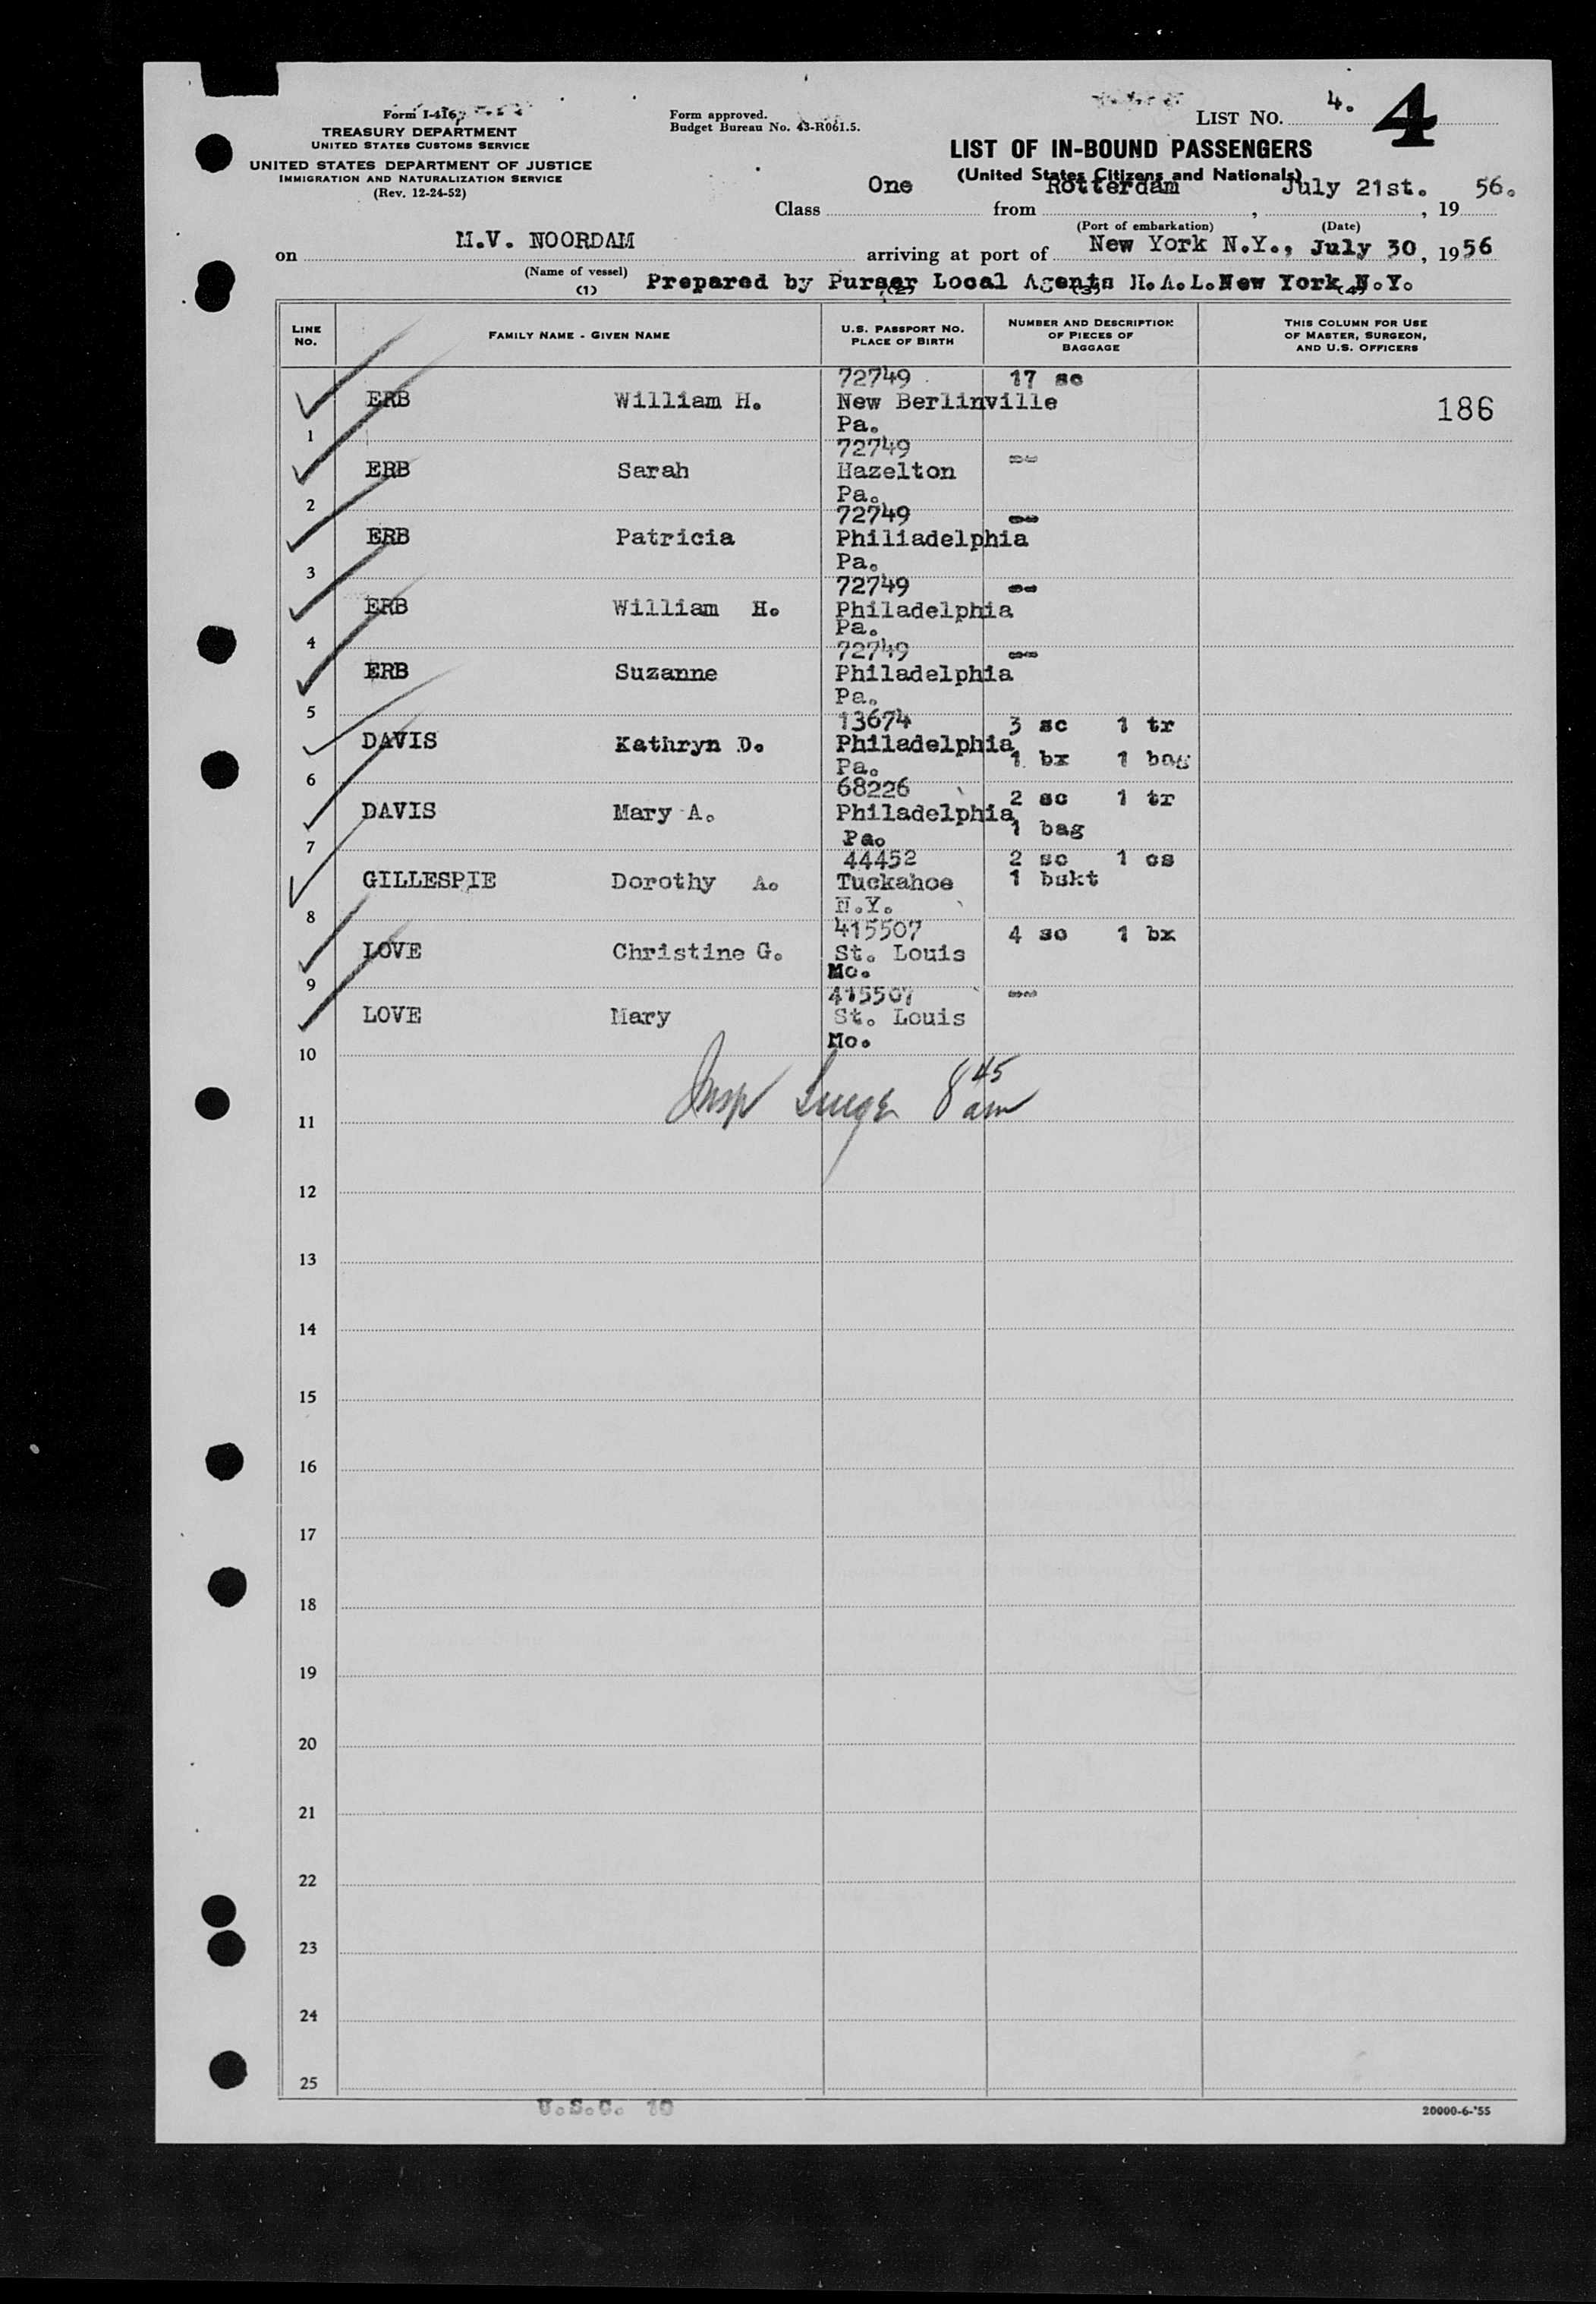 Form I-416
TREASURY DEPARTMENT
UNITED STATES CUSTOMS SERVICE
UNITED STATES DEPARTMENT OF JUSTICE
IMMIGRATION AND NATURALIZATION SERVICE
(Rev. 12-24-52)
Form approved.
Budget Bureau No. 43-R061.5.
LIST NO. 4. 4
LIST OF IN-BOUND PASSENGERS
(United States Citizens and Nationals)
Class One from Rotterdam, July 21st., 19 56.
(Port of embarkation) (Date)
on M.V. NOORDAM arriving at port of New York N.Y., July 30, 1956
(Name of vessel)
Prepared by Purser Local Agents H.A.L. New York N.Y.
(1) (2) (3) (4)
LINE NO.
FAMILY NAME - GIVEN NAME
U.S. PASSPORT NO.
PLACE OF BIRTH
NUMBER AND DESCRIPTION
OF PIECES OF
BAGGAGE
THIS COLUMN FOR USE
OF MASTER, SURGEON,
AND U.S. OFFICERS
72749 17 sc
ERB William H. New Berlinville 186
1 Pa.
72749
ERB Sarah Hazelton --
2 Pa.
72749 --
ERB Patricia Philiadelphia
3 Pa.
72749 --
ERB William H. Philadelphia
4 Pa.
72749 --
ERB Suzanne Philadelphia
5 Pa.
13674 3 sc 1 tr
DAVIS Kathryn D. Philadelphia
6 Pa. 1 bx 1 bag
68226 2 sc 1 tr
DAVIS Mary A. Philadelphia
7 Pa. 1 bag
44452 2 sc 1 cs
GILLESPIE Dorothy A. Tuckahoe 1 bskt
8 N.Y.
415507 4 sc 1 bx
LOVE Christine G. St. Louis
9 Mo.
415507 --
LOVE Mary St. Louis
10 Mo.
Insp 8 45 am
11
12
13
14
15
16
17
18
19
20
21
22
23
24
25
U.S.C. 10
20000-6-'55